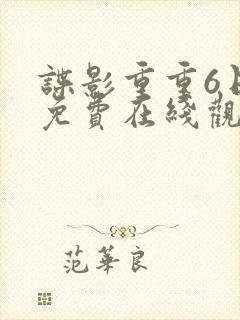 諜影重重6
免費在綫觀
范華良